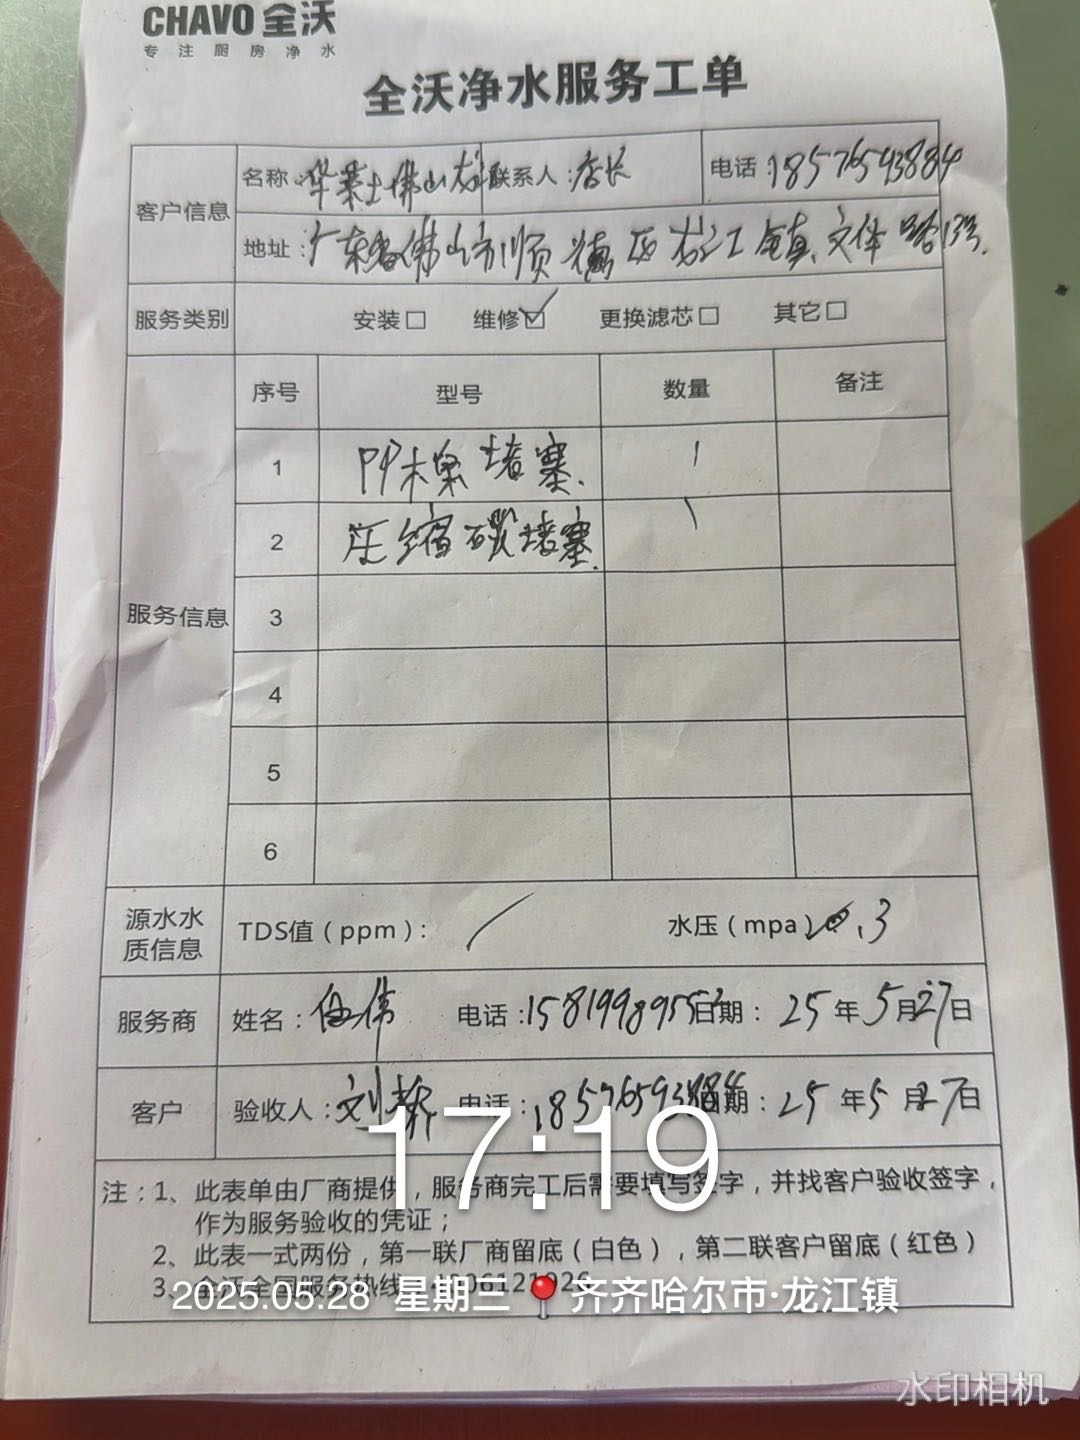 CHAVO 全沃
专注厨房净水
全沃净水服务工单
客户信息
名称：华莱士佛山龙 联系人：店长 电话：18576593884
地址：广东省佛山市顺德区龙江镇文体路13号.
服务类别 安装□ 维修☑ 更换滤芯□ 其它□
服务信息
序号 型号 数量 备注
1 PP棉堵塞. 1
2 压缩碳堵塞. 1
3
4
5
6
源水水质信息 TDS值（ppm）： / 水压（mpa） .3
服务商 姓名：伟 电话：158199895 日期：25年5月27日
客户 验收人：刘 电话：18576593884 日期：25年5月27日
17:19
注：1、此表单由厂商提供，服务商完工后需要填写签字，并找客户验收签字，
作为服务验收的凭证；
2、此表一式两份，第一联厂商留底（白色），第二联客户留底（红色）
3、全沃全国服务热线 06121926
2025.05.28 星期三 齐齐哈尔市·龙江镇
水印相机